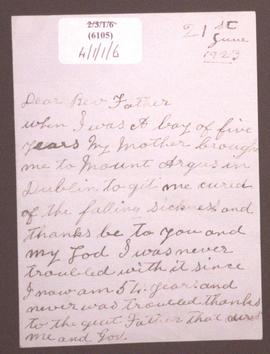 2/3/1/6
(6105)
4/1/1/6
21st
June
1923
Dear Rev Father
when I was A boy of five
years My Mother brought
me to Mount Argus in
Dublin to git me cured
of the falling sickness and
thanks be to you and
my God I was never
troubled with it since
I now am 54 years and
never was troubled thanks
to the great Father that cured
me and God.